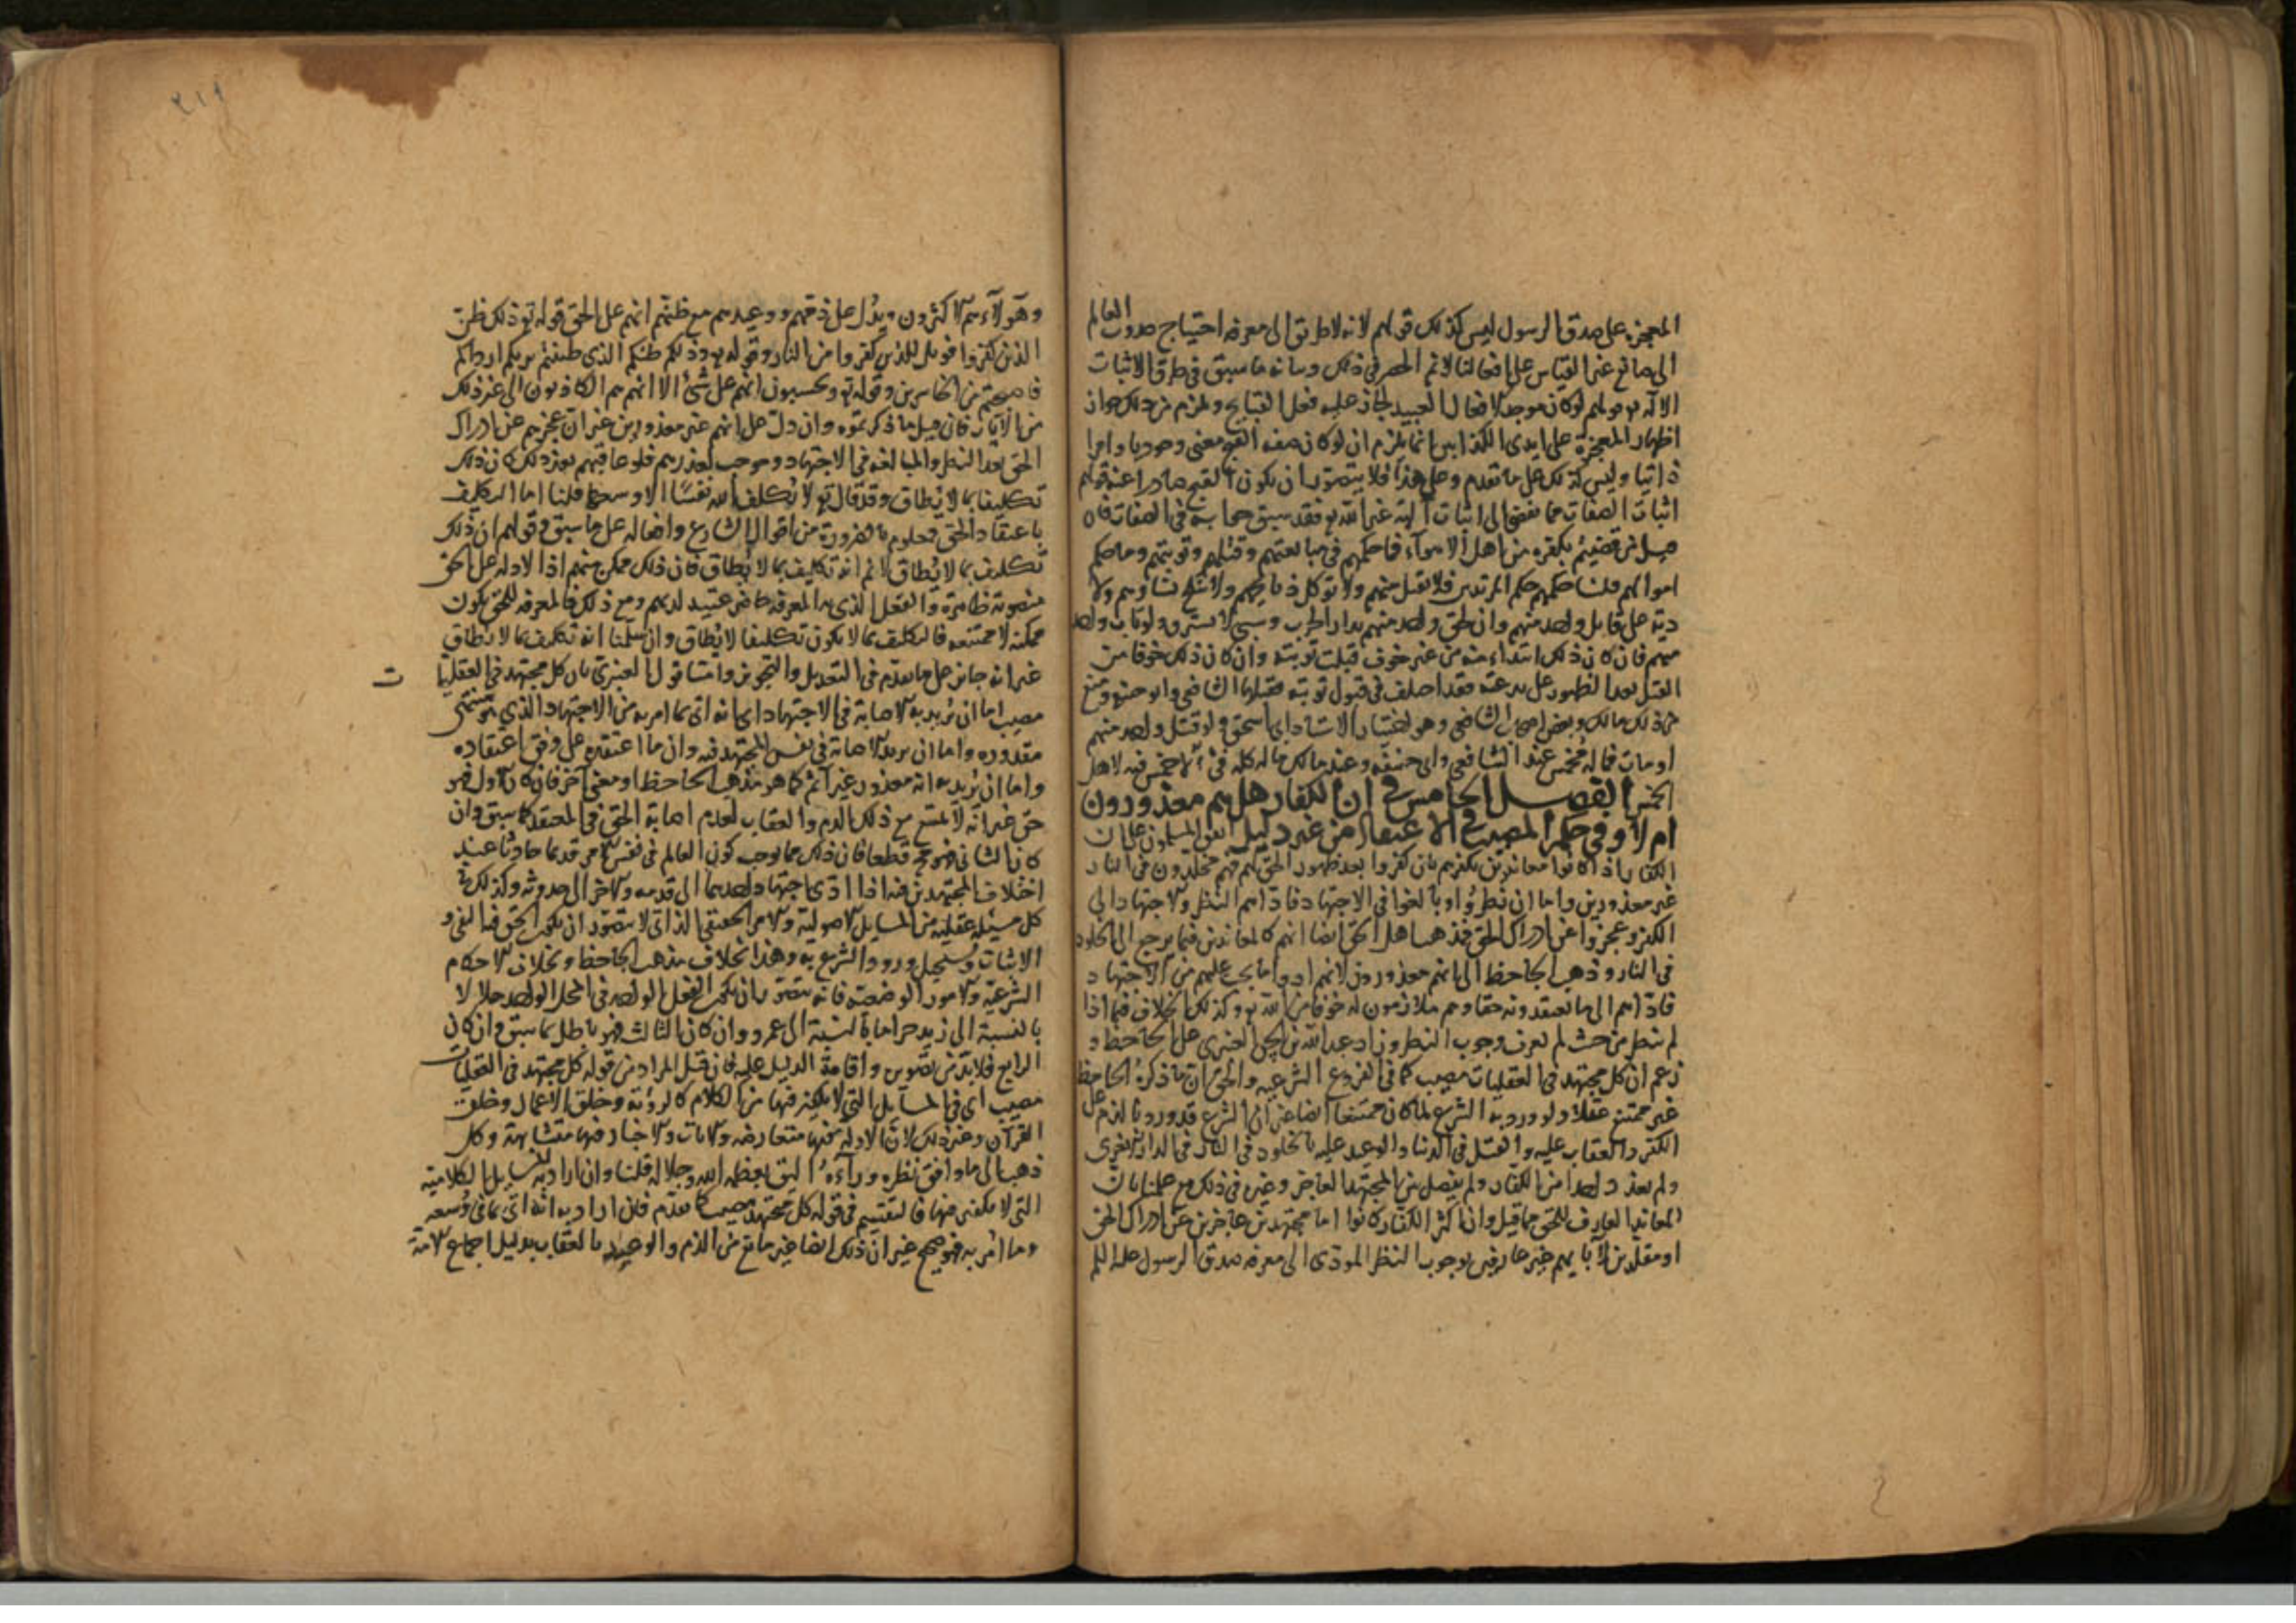 المعجزة على صدق الرسول ليس كذلك قولهم لانه لا طريق الى معرفه احتياج حدوث العالم
الى صانع غير القياس على افعالنا لانم الحصر في ذلك وبيانه ما سبق في طرق الاثبات
الاله قولهم لو كان موجدا لافعال العبيد لجاز عليه فعل القبايح ويلزم من ذلك جواز
اظهار المعجزة على ايدى الكذابين انما يلزم ان لو كان صفه القبح معنى وجوديا وامرا
ذاتيا وليس كذلك على ما تقدم وعلى هذا فلا يتصور ان يكون القبح صادرا عنه قولهم
اثبات الصفات مما يفضى الى اثبات آلهة غير الله تع فقد سبق جوابه في الصفات فان
قيل من قضيتم بكفره من اهل الاهوآء فما حكمهم في مبايعتهم وقتلهم وتوبتهم وما حكم
اموالهم قلنا حكمهم حكم المرتدين فلا نقبل منهم ولا توكل ذبايحهم ولا تنكح نساوهم ولا
دية على قاتل واحد منهم وان لحق واحد منهم بدار الحرب وسبي لا يسترق ولو تاب واحد
منهم فان كان ذلك ابتداء منه من غير خوف قبلت توبته وان كان ذلك خوفا من
القتل بعد الظهور على بدعته فقد اختلف في قبول توبته فقبلها الشافعي وابو حنيفه ومنع
من ذلك مالك وبعض اصحاب الشافعي وهو اختيار الاستاذ ابي اسحق ولو قتل واحد منهم
او مات فماله مخمس عند الشافعي وابي حنيفه وعند مالك ماله كله فئ لا خمس فيه لاهل
الخمس الفصل الخامس في ان الكفار هل هم معذورون
ام لا وفي حكم المصيب في الاعتقاد من غير دليل اتفق المسلمون على ان
الكفار اذا كانوا معاندين بكفرهم بان كفروا بعد ظهور الحق لهم فهم مخلدون في النار
غير معذورين واما ان نظروا وبالغوا في الاجتهاد فادّاهم النظر والاجتهاد الى
الكفر وعجزوا عن ادراك الحق فمذهب اهل الحق ايضا انهم كالمعاندين فيما يرجع الى الخلود
في النار وذهب الجاحظ الى انهم معذورون لانهم ادوا ما يجب عليهم من الاجتهاد
فادّاهم الى ما يعتقدونه حقا وهم ملازمون له خوفا من الله تع وكذلك الخلاف فيما اذا
لم ينظر من حيث لم يعرف وجوب النظر وزاد عبد الله بن الحسن العنبري على الجاحظ و
زعم ان كل مجتهد في العقليات مصيب كما في الفروع الشرعيه والحق ان ما ذكره الجاحظ
غير ممتنع عقلا ولو ورد به الشرع لما كان ممتنعا ايضا غير ان الشرع قد ورد بالذم على
الكفر والعقاب عليه والقتل في الدنيا والوعيد عليه بالخلود في النار في الدار الاخرى
ولم يعذر واحدا من الكفار ولم يفصل بين المجتهد العاجز وغيره في ذلك مع علمنا بان
المعاند العارف للحق مما قيل وان اكثر الكفار كانوا اما مجتهدين عاجزين عن ادراك الحق
او مقلدين لآبايهم غير عارفين بوجوب النظر المودى الى معرفه صدق الرسول عليه السلم
٢١٩
وهولآء هم الاكثرون ويدل على ذمهم ووعيدهم مع ظنهم انهم على الحق قوله تع ذلك ظن
الذين كفروا فويل للذين كفروا من النار وقوله تع وذلكم ظنكم الذى ظننتم بربكم ارداكم
فاصبحتم من الخاسرين وقوله تع ويحسبون انهم على شئ الا انهم هم الكاذبون الى غير ذلك
من الآيات فان قيل ما ذكرتموه وان دل على انهم غير معذورين غير ان عجزهم عن ادراك
الحق بعد النظر والمبالغه في الاجتهاد موجب لعذرهم فلو عاقبهم بعد ذلك كان ذلك
تكليفا بما لا يطاق وقد قال تع لا يكلف الله نفسًا الا وسعها قلنا اما التكليف
باعتقاد الحق فمعلوم بالضرورة من اقوال الشارع وافعاله على ما سبق وقولهم ان ذلك
تكليف بما لا يطاق لانم انه تكليف بما لا يطاق فان ذلك ممكن منهم اذ الادله على الحق
منصوبة ظاهرة والعقل الذى به المعرفه حاضر عتيد لديهم ومع ذلك فالمعرفه للحق تكون
ممكنه لا ممتنعه فالتكليف بما لا يكون تكليفا لا يطاق وان سلمنا انه تكليف بما لا يطاق
غير انه جايز على ما تقدم في التعديل والتجوير واما قول العنبري بان كل مجتهد في العقليا ت
مصيب اما ان يريد به الاصابة في الاجتهاد اي انه اتى بما امر به من الاجتهاد الذي هو منتهى
مقدوره واما ان يريد الاصابة في نفس المجتهد فيه وان ما اعتقده على وفق اعتقاده
واما ان يريد به انه معذور غير آثم كما هو مذهب الجاحظ او معنى آخر فان كان الاول فهو
حق غير انه لا يمتنع مع ذلك الذم والعقاب لعدم اصابة الحق في المعتقد كما سبق وان
كان الثاني فهو محال قطعا فان ذلك مما يوجب كون العالم في نفس الامر قديما حادثا عند
اختلاف المجتهدين فيه اذا ادى اجتهاد احدهما الى قدمه والاخر الى حدوثه وكذلك في
كل مسئلة عقلية من المسايل الاصولية والامر الحقيقي الذاتي لا يتصور ان يجتمع الحق فيه النفى و
الاثبات ويستحيل ورود الشرع به وهذا بخلاف مذهب الجاحظ وبخلاف الاحكام
الشرعية والامور الوضعيه فانه يتصور بان يكون الفعل الواحد في المحل الواحد حلالا
بالنسبة الى زيد حراما بالنسبة الى عمرو وان كان الثالث فهو باطل بما سبق وان كان
الرابع فلا بد من تصويره واقامة الدليل عليه فان قيل المراد من قوله كل مجتهد في العقليات
مصيب اى في المسآيل التى لا يكفر فيها من الكلام كالرؤية وخلق الاعمال وخلق
القرآن وغير ذلك لان الادله فيها متعارضه والآيات والاخبار فيها متشابهة وكل
ذهب الى ما وافق نظره ورآءه اليق بعظمه الله وجلاله قلنا وان اراد به المسايل الكلامية
التى لا يكفر فيها فالتقسيم في قوله كل مجتهد مصيب كما تقدم فان اراد به انه اتى بما في وسعه
وما امر به فهو صحيح غير ان ذلك ايضا غير مانع من الذم والوعيد بالعقاب بدليل اجماع الامة